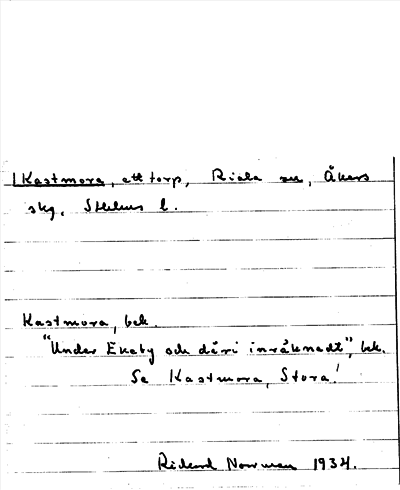 Kastmora, ett torp, Riala sn, Åkers
skg, Sthlms l.
Kastmora, bek.
"Under Ekeby och däri inräknadt", bek.
Se Kastmora, Stora!
Rickard Norrman 1934.